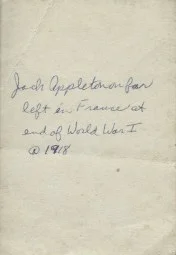 Jack Appleton on far
left in France at
end of World War I
@ 1918